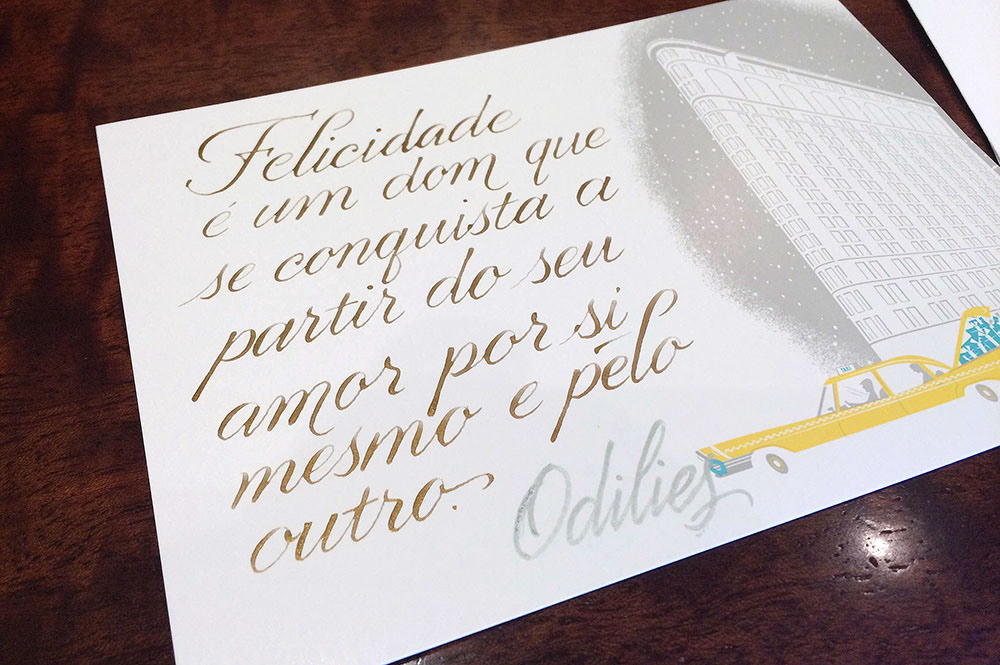 Felicidade
é um dom que
se conquista a
partir do seu
amor por si
mesmo e pelo
outro.
Odilies
TAXI